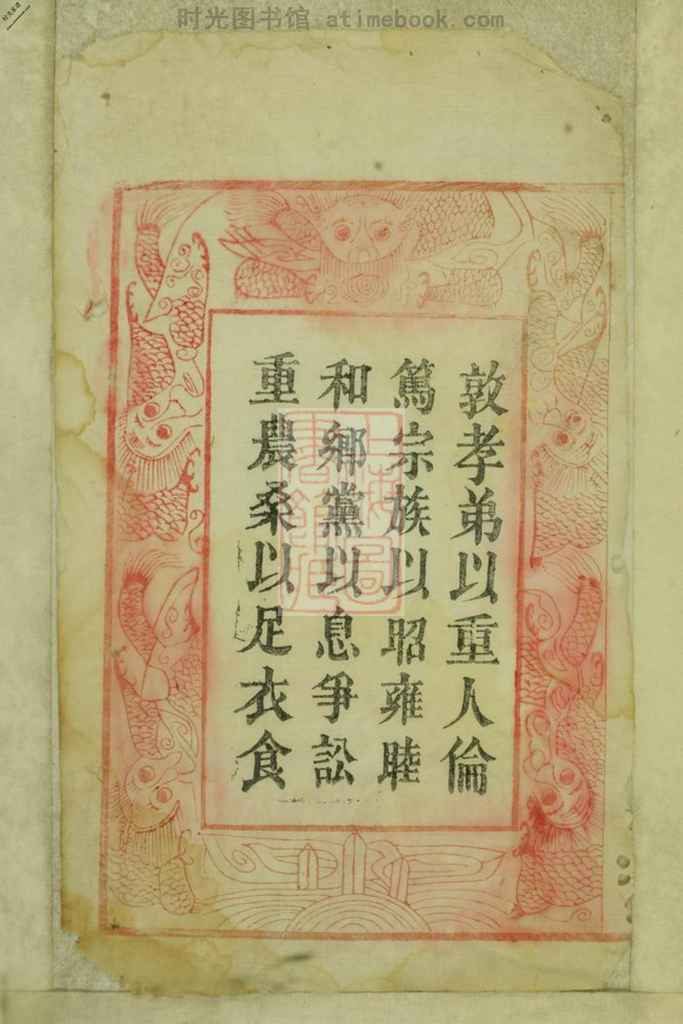 时光图书馆 atimebook.com
敦孝弟以重人倫
篤宗族以昭雍睦
和鄉黨以息爭訟
重農桑以足衣食